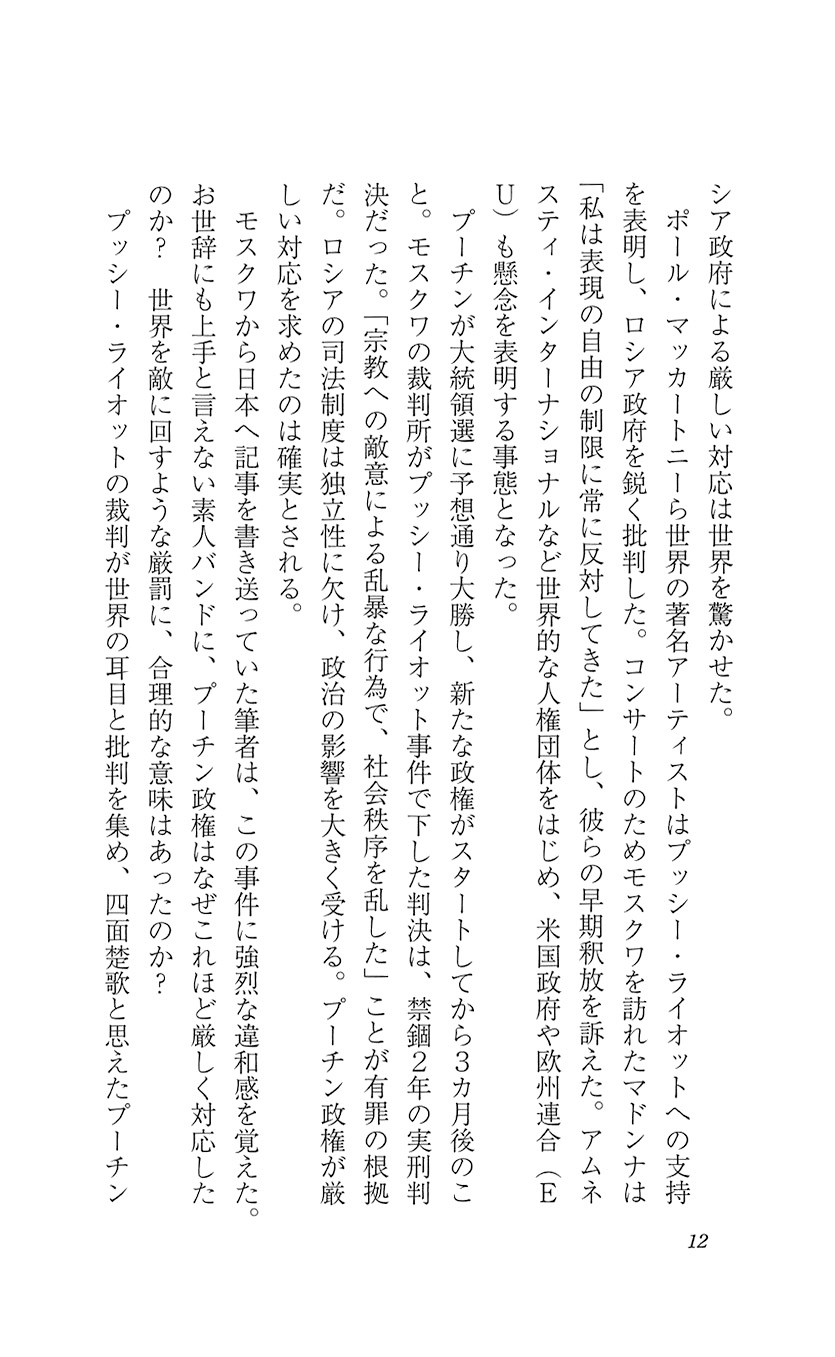 シア政府による厳しい対応は世界を驚かせた。
　ポール・マッカートニーら世界の著名アーティストはプッシー・ライオットへの支持
を表明し、ロシア政府を鋭く批判した。コンサートのためモスクワを訪れたマドンナは
「私は表現の自由の制限に常に反対してきた」とし、彼らの早期釈放を訴えた。アムネ
スティ・インターナショナルなど世界的な人権団体をはじめ、米国政府や欧州連合（Ｅ
Ｕ）も懸念を表明する事態となった。
　プーチンが大統領選に予想通り大勝し、新たな政権がスタートしてから３カ月後のこ
と。モスクワの裁判所がプッシー・ライオット事件で下した判決は、禁錮２年の実刑判
決だった。「宗教への敵意による乱暴な行為で、社会秩序を乱した」ことが有罪の根拠
だ。ロシアの司法制度は独立性に欠け、政治の影響を大きく受ける。プーチン政権が厳
しい対応を求めたのは確実とされる。
　モスクワから日本へ記事を書き送っていた筆者は、この事件に強烈な違和感を覚えた。
お世辞にも上手と言えない素人バンドに、プーチン政権はなぜこれほど厳しく対応した
のか？　世界を敵に回すような厳罰に、合理的な意味はあったのか？
　プッシー・ライオットの裁判が世界の耳目と批判を集め、四面楚歌と思えたプーチン
12